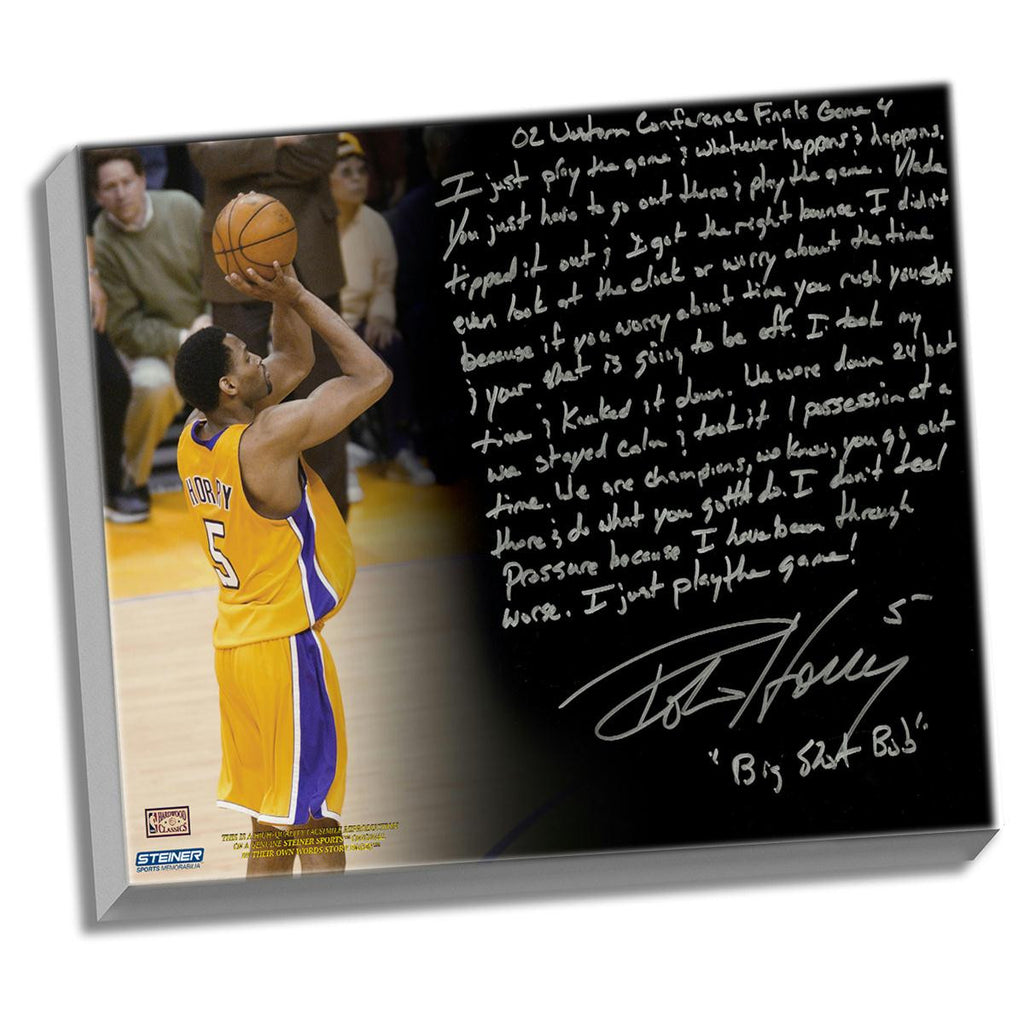 02 Western Conference Finals Game 4
I just play the game & whatever happens & happens.
You just have to go out there & play the game. Vlade
tipped it out & I got the right bounce. I didn't
even look at the clock or worry about the time
because if you worry about time you rush your shot
& your shot is going to be off. I took my
time & knocked it down. We were down 24 but
we stayed calm & took it 1 possession at a
time. We are champions, we know, you go out
there & do what you gotta do. I don't feel
Pressure because I have been through
worse. I just play the game!
5
Robert Horry
"Big Shot Bob"
HORRY
5
HARDWOOD
CLASSICS
STEINER
SPORTS MEMORABILIA
THIS IS A HIGH-QUALITY FACSIMILE REPRODUCTION
OF A GENUINE STEINER SPORTS
IN THEIR OWN WORDS STORY